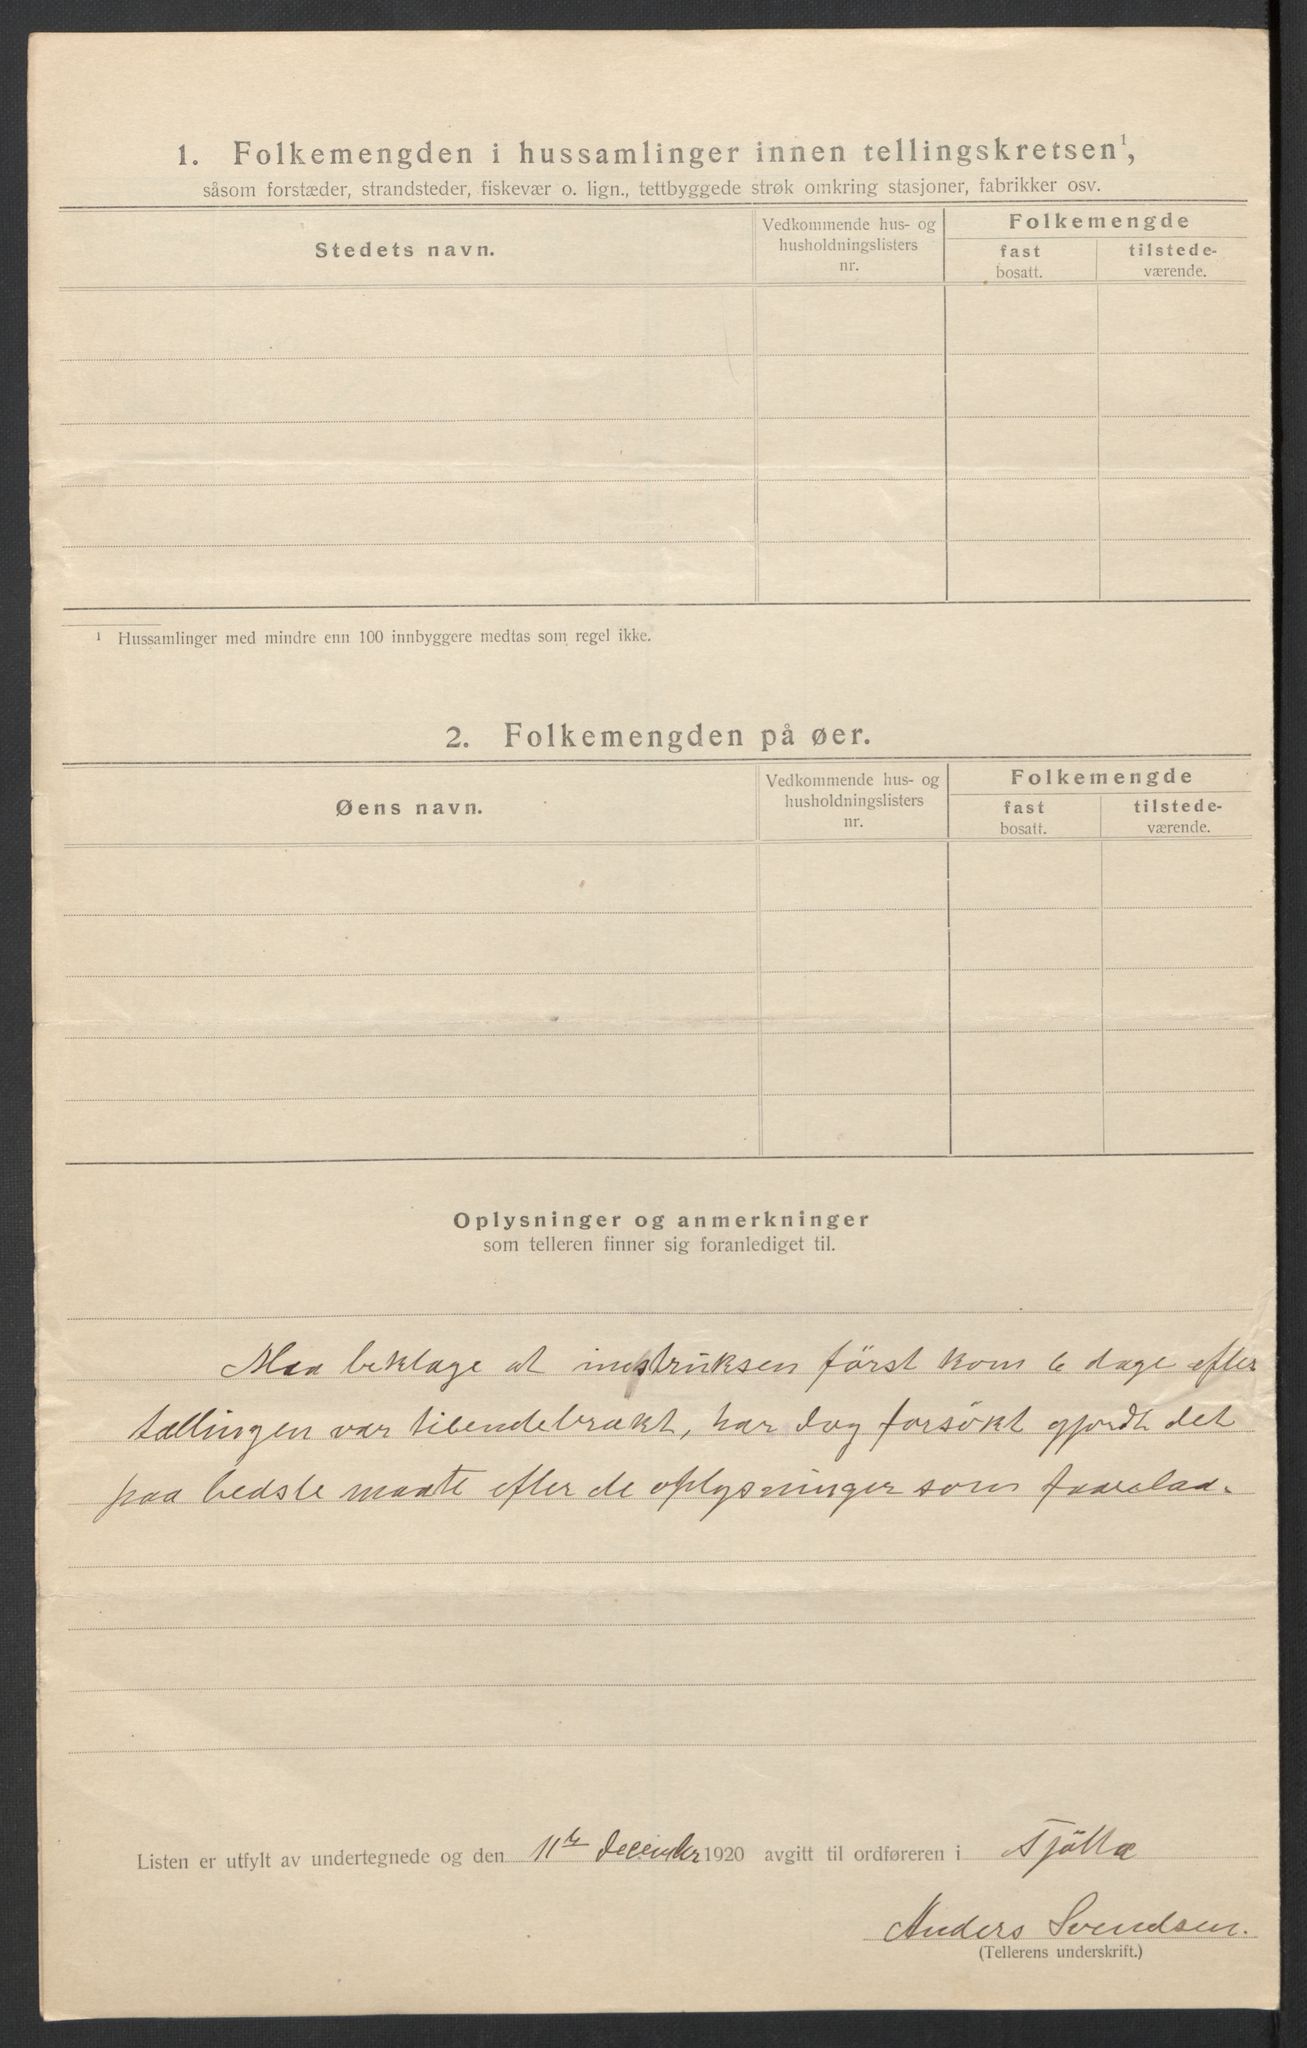 1. Folkemengden i hussamlinger innen tellingskretsen¹,
såsom forstæder, strandsteder, fiskevær o. lign., tettbyggede strøk omkring stasjoner, fabrikker osv.
Stedets navn.
Vedkommende hus- og
husholdningslisters
nr.
Folkemengde
fast
bosatt.
tilstede-
værende.
¹ Hussamlinger med mindre enn 100 innbyggere medtas som regel ikke.
2. Folkemengden på øer.
Øens navn.
Vedkommende hus- og
husholdningslisters
nr.
Folkemengde
fast
bosatt.
tilstede-
værende.
Oplysninger og anmerkninger
som telleren finner sig foranlediget til.
Maa beklage at instruksen först kom 6 dage efter
tællingen var tilendebrakt, har dog forsökt gjordt det
paa bedste maate efter de oplysninger som forelaa.
Listen er utfylt av undertegnede og den 11te december 1920 avgitt til ordføreren i Tjötta
Anders Svendsen.
(Tellerens underskrift.)